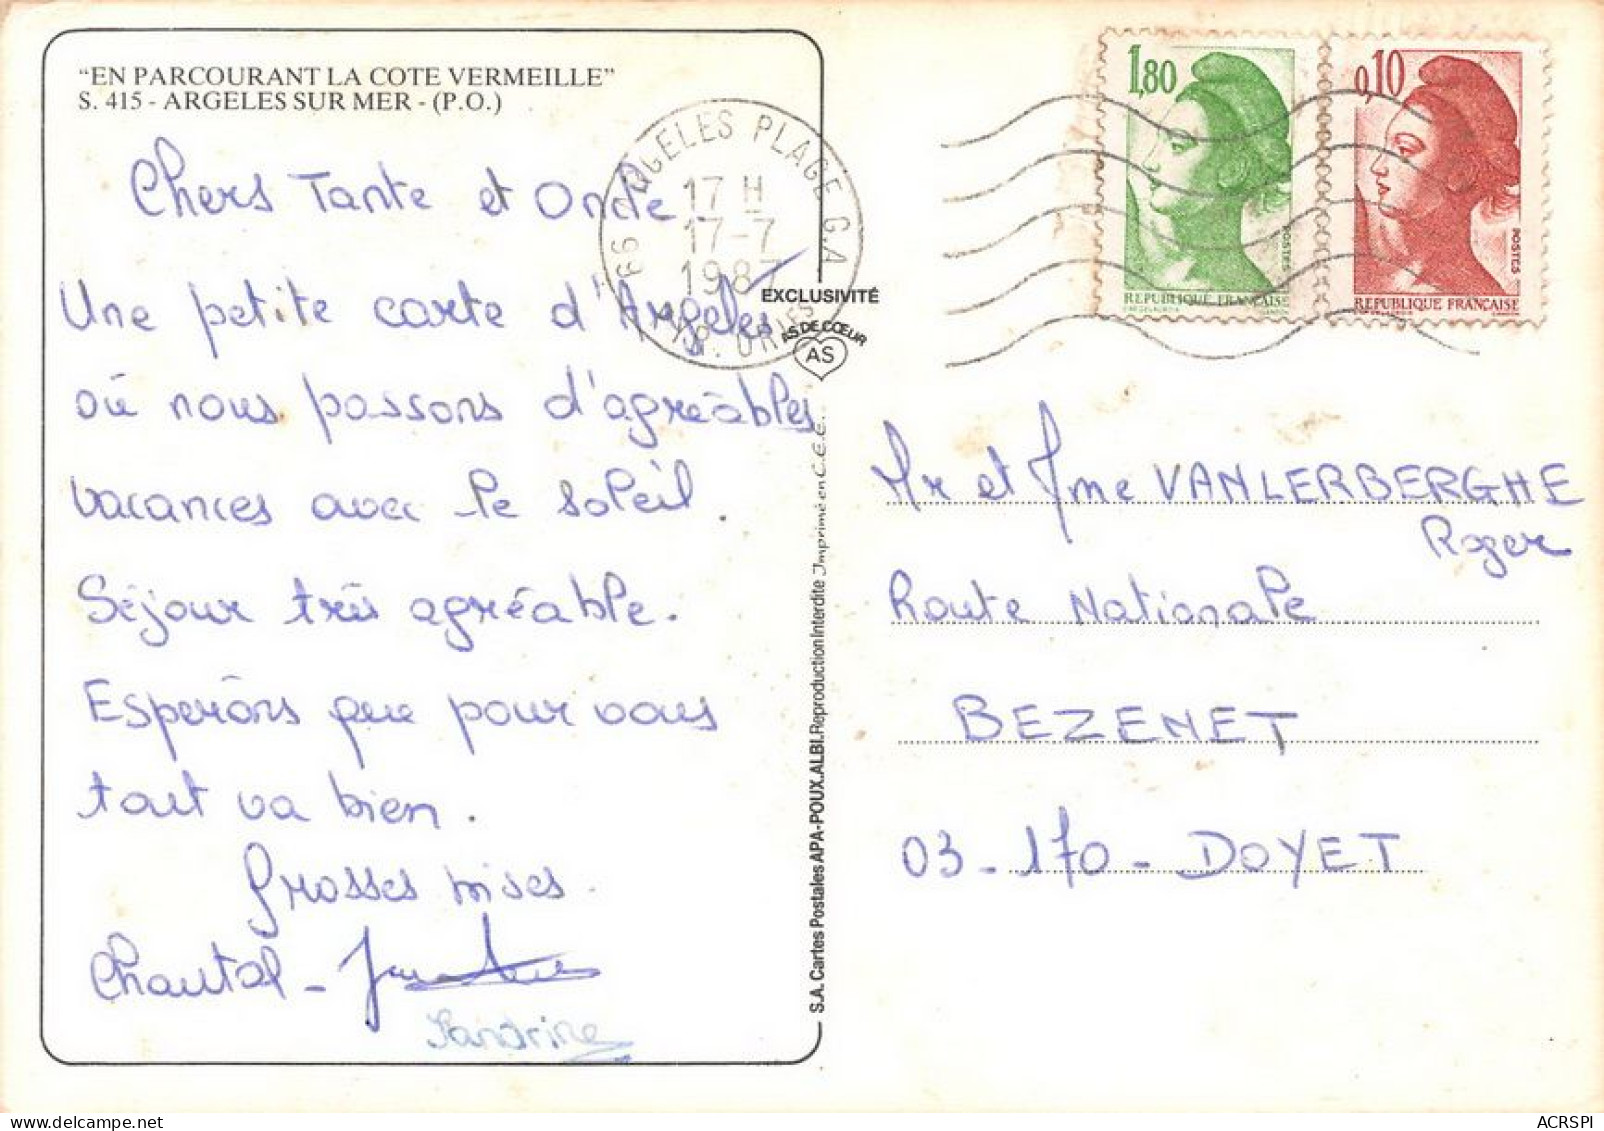 "EN PARCOURANT LA COTE VERMEILLE"
S. 415 - ARGELES SUR MER - (P.O.)
Chers Tante et Oncle
Une petite carte d'Argeles
où nous passons d'agréables
vacances avec le soleil.
Séjour très agréable.
Esperons que pour vous
tout va bien.
Grosses bises.
Chantal -
Sandrine
66 ARGELES PLAGE G.A
17 H
17-7
1987
PYR. ORIES
EXCLUSIVITÉ
AS DE CŒUR
AS
S.A. Cartes Postales APA-POUX.ALBI. Reproduction Interdite Imprimé en C.E.E.
1,80
POSTES
REPUBLIQUE FRANÇAISE
0,10
POSTES
REPUBLIQUE FRANÇAISE
Mr et Mme VANLERBERGHE
Roger
Route Nationale
BEZENET
03-170- DOYET
ACRSPI